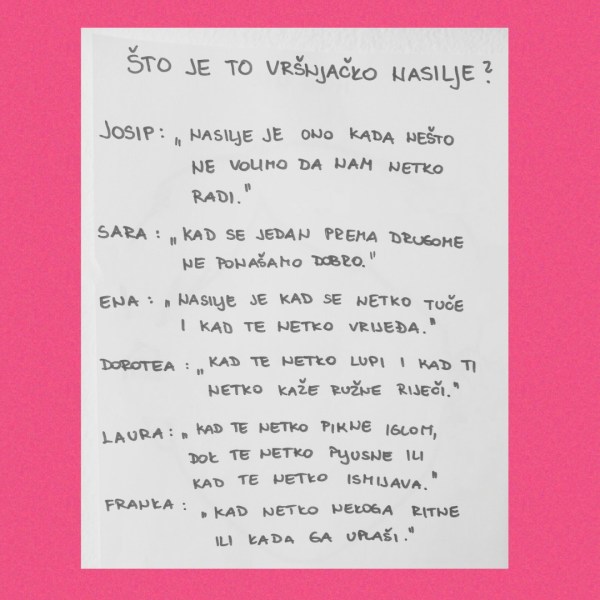 ŠTO JE TO VRŠNJAČKO NASILJE?
JOSIP: „NASILJE JE ONO KADA NEŠTO
NE VOLIMO DA NAM NETKO
RADI."
SARA: „KAD SE JEDAN PREMA DRUGOME
NE PONAŠAMO DOBRO."
ENA: „NASILJE JE KAD SE NETKO TUČE
I KAD TE NETKO VRIJEĐA."
DOROTEA: „KAD TE NETKO LUPI I KAD TI
NETKO KAŽE RUŽNE RIJEČI."
LAURA: „KAD TE NETKO PIKNE IGLOM,
DOK TE NETKO PLJUSNE ILI
KAD TE NETKO ISMIJAVA."
FRANKA: „KAD NETKO NEKOGA RITNE
ILI KADA GA UPLAŠI."